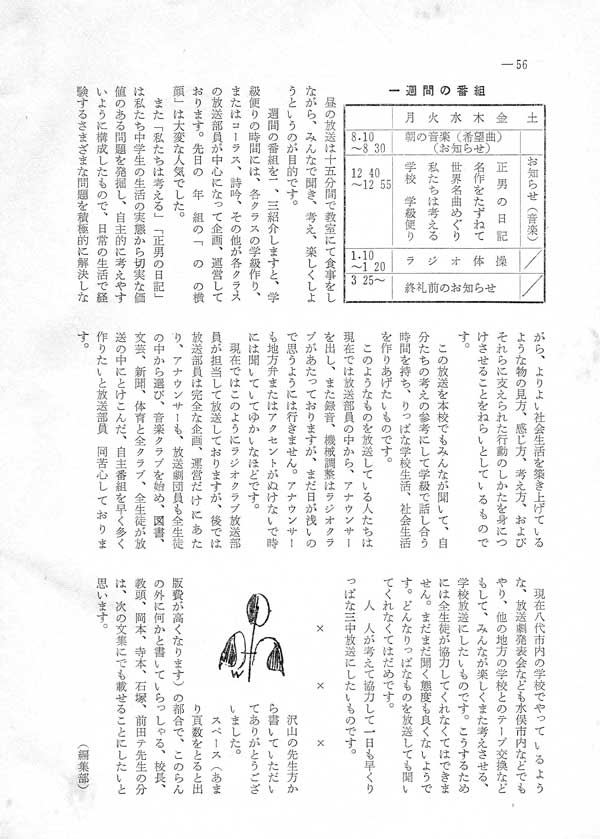 —56
一週間の番組
月 火 水 木 金 土
8.10～8 30 朝の音楽（希望曲）（お知らせ）
12 40～12 55
学校 学級便り
私たちは考える
世界名曲めぐり
名作をたずねて
正男の日記
お知らせ（音楽）
1.10～1 20 ラジオ体操
3 25～ 終礼前のお知らせ
昼の放送は十五分間で教室にて食事をし
ながら、みんなで聞き、考え、楽しくしよ
うというのが目的です。
週間の番組を一、二紹介しますと、学
級便りの時間には、各クラスの学級作り、
またはコーラス、詩吟、その他が各クラス
の放送部員が中心になって企画、運営して
おります。先日の 年 組の「 の の横
顔」は大変な人気でした。
また「私たちは考える」「正男の日記」
は私たち中学生の生活の実態から切実な価
値のある問題を発掘し、自主的に考えやす
いように構成したもので、日常の生活で経
験するさまざまな問題を積極的に解決しな
がら、よりよい社会生活を築き上げている
ような物の見方、感じ方、考え方、および
それらに支えられた行動のしかたを身につ
けさせることをねらいとしているもので
す。
この放送を本校でもみんなが聞いて、自
分たちの考えの参考にして学級で話し合う
時間を持ち、りっぱな学校生活、社会生活
を作りあげたいものです。
このようなものを放送している人たちは
現在では放送部員の中から、アナウンサー
を出し、また録音、機械調整はラジオクラ
ブがあたっておりますが、まだ日が浅いの
で思うようには行きません。アナウンサー
も地方弁またはアクセントがぬけないで時
には聞いていてゆかいなほどです。
現在ではこのようにラジオクラブ放送部
員が担当して放送しておりますが、後では
放送部員は完全な企画、運営だけにあた
り、アナウンサーも、放送劇団員も全生徒
の中から選び、音楽クラブを始め、図書、
文芸、新聞、体育と全クラブ、全生徒が放
送の中にとけこんだ、自主番組を早く多く
作りたいと放送部員 同苦心しておりま
す。
現在八代市内の学校でやっているよう
な、放送劇発表会なども水俣市内などでも
やり、他の地方の学校とのテープ交換など
もして、みんなが楽しくまた考えさせる、
学校放送にしたいものです。こうするため
には全生徒が協力してくれなくてはできま
せん。まだまだ聞く態度も良くないようで
す。どんなりっぱなものを放送しても聞い
てくれなくてはだめです。
人 人が考えて協力して一日も早くり
っぱな三中放送にしたいものです。
× × ×
沢山の先生方か
ら書いていただい
てありがとうござ
いました。
スペース（あま
り頁数をとると出
版費が高くなります）の都合で、このらん
の外に何かと書いていらっしゃる、校長、
教頭、岡本、寺本、石塚、前田テ先生の分
は、次の文集にでも載せることにしたいと
思います。
（編集部）